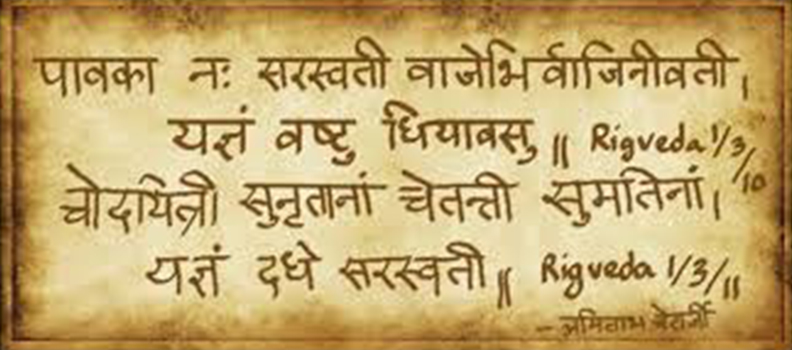 पावका नः सरस्वती वाजेभिर्वाजिनीवती।
यज्ञं वष्टु धियावसु॥ Rigveda 1/3/10
चोदयित्री सुनृतानां चेतन्ती सुमतिनां।
यज्ञं दधे सरस्वती॥ Rigveda 1/3/11
- अमिताभ चेतर्जी